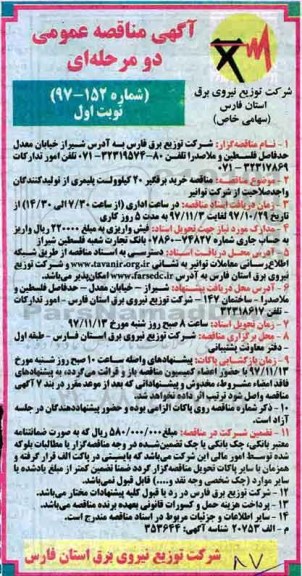 آگهی مناقصه عمومی
دو مرحله‌ای
(شماره ۱۵۲-۹۷)
نوبت اول
شرکت توزیع نیروی برق
استان فارس
(سهامی خاص)
۱ - نام مناقصه‌گزار: شرکت توزیع برق فارس به آدرس شیراز خیابان معدل
حدفاصل فلسطین و ملاصدرا تلفن ۸۰-۳۲۳۱۹۵۷۴-۰۷۱ تلفن امور تدارکات
۳۲۳۱۷۸۶۹-۰۷۱
۲ - موضوع مناقصه: مناقصه خرید برقگیر ۲۰ کیلوولت پلیمری از تولیدکنندگان
واجدصلاحیت از شرکت توانیر
۳ - زمان دریافت اسناد مناقصه: در ساعت اداری (از ساعت ۷/۳۰ الی ۱۴/۳۰) از
تاریخ ۹۷/۱۰/۲۹ لغایت ۹۷/۱۱/۳ به مدت ۵ روز کاری
۴ - مدارک مورد نیاز جهت تحویل اسناد: فیش واریزی به مبلغ ۲۲۰۰۰۰ ریال واریز
به حساب جاری شماره ۰۷۸۶۰۰۷۴۸۲۷ بانک تجارت شعبه فلسطین شیراز
۵ - آدرس محل دریافت اسناد: دسترسی به اسناد مناقصه از طریق شبکه
اطلاع رسانی معاملات توانیر به نشانی www.tavanir.org.ir و شرکت توزیع
نیروی برق استان فارس به آدرس www.farsedc.ir امکان‌پذیر می‌باشد.
۶ - آدرس محل دریافت پیشنهاد: شیراز - خیابان معدل - حدفاصل فلسطین و
ملاصدرا - ساختمان ۱۴۷ - شرکت توزیع نیروی برق استان فارس - امور تدارکات
- تلفن ۳۲۳۱۸۶۱۷
۷ - زمان تحویل اسناد: ساعت ۸ صبح روز شنبه مورخ ۹۷/۱۱/۱۳
۸ - محل برگزاری مناقصه: شرکت توزیع نیروی برق استان فارس - طبقه اول
دفتر معاونت پشتیبانی
۹ - زمان بازگشایی پاکات: پیشنهادهای واصله ساعت ۱۰ صبح روز شنبه مورخ
۹۷/۱۱/۱۳ با حضور اعضاء کمیسیون مناقصه باز و قرائت می‌گردد، به پیشنهادهای
فاقد امضاء مشروط، مخدوش و پیشنهاداتی که بعد از موعد مقرر در بند ۷ آگهی
مناقصه واصل شود ترتیب اثر داده نخواهد شد
۱۰ - ذکر شماره مناقصه روی پاکات الزامی بوده و حضور پیشنهاددهندگان در جلسه
آزاد است.
۱۱ - تضمین شرکت در مناقصه: مبلغ ۵۸۰/۰۰۰/۰۰۰ ریال که به صورت ضمانتنامه
معتبر بانکی، چک بانکی یا چک تضمین‌شده در وجه مناقصه‌گزار یا مطالبات بلوکه
شده توسط امور مالی این شرکت می‌باشد که بایستی در پاکت الف قرار گرفته و
همزمان با سایر پاکات تحویل مناقصه‌گزار گردد ضمناً تضمین کمتر از مبلغ یادشده یا
سایر موارد (چک شخصی وجه نقد و...) قابل قبول نمی‌باشد.
۱۲ - شرکت توزیع برق فارس در رد یا قبول کلیه پیشنهادات مختار می‌باشد.
۱۳ - پرداخت هزینه حمل و کسورات قانونی بعهده برنده مناقصه می‌باشد.
۱۴ - سایر اطلاعات و جزئیات مربوط در اسناد مناقصه مندرج است.
م - الف ۲۰۷۵۳ شناسه آگهی: ۳۵۳۶۴۴
شرکت توزیع نیروی برق استان فارس